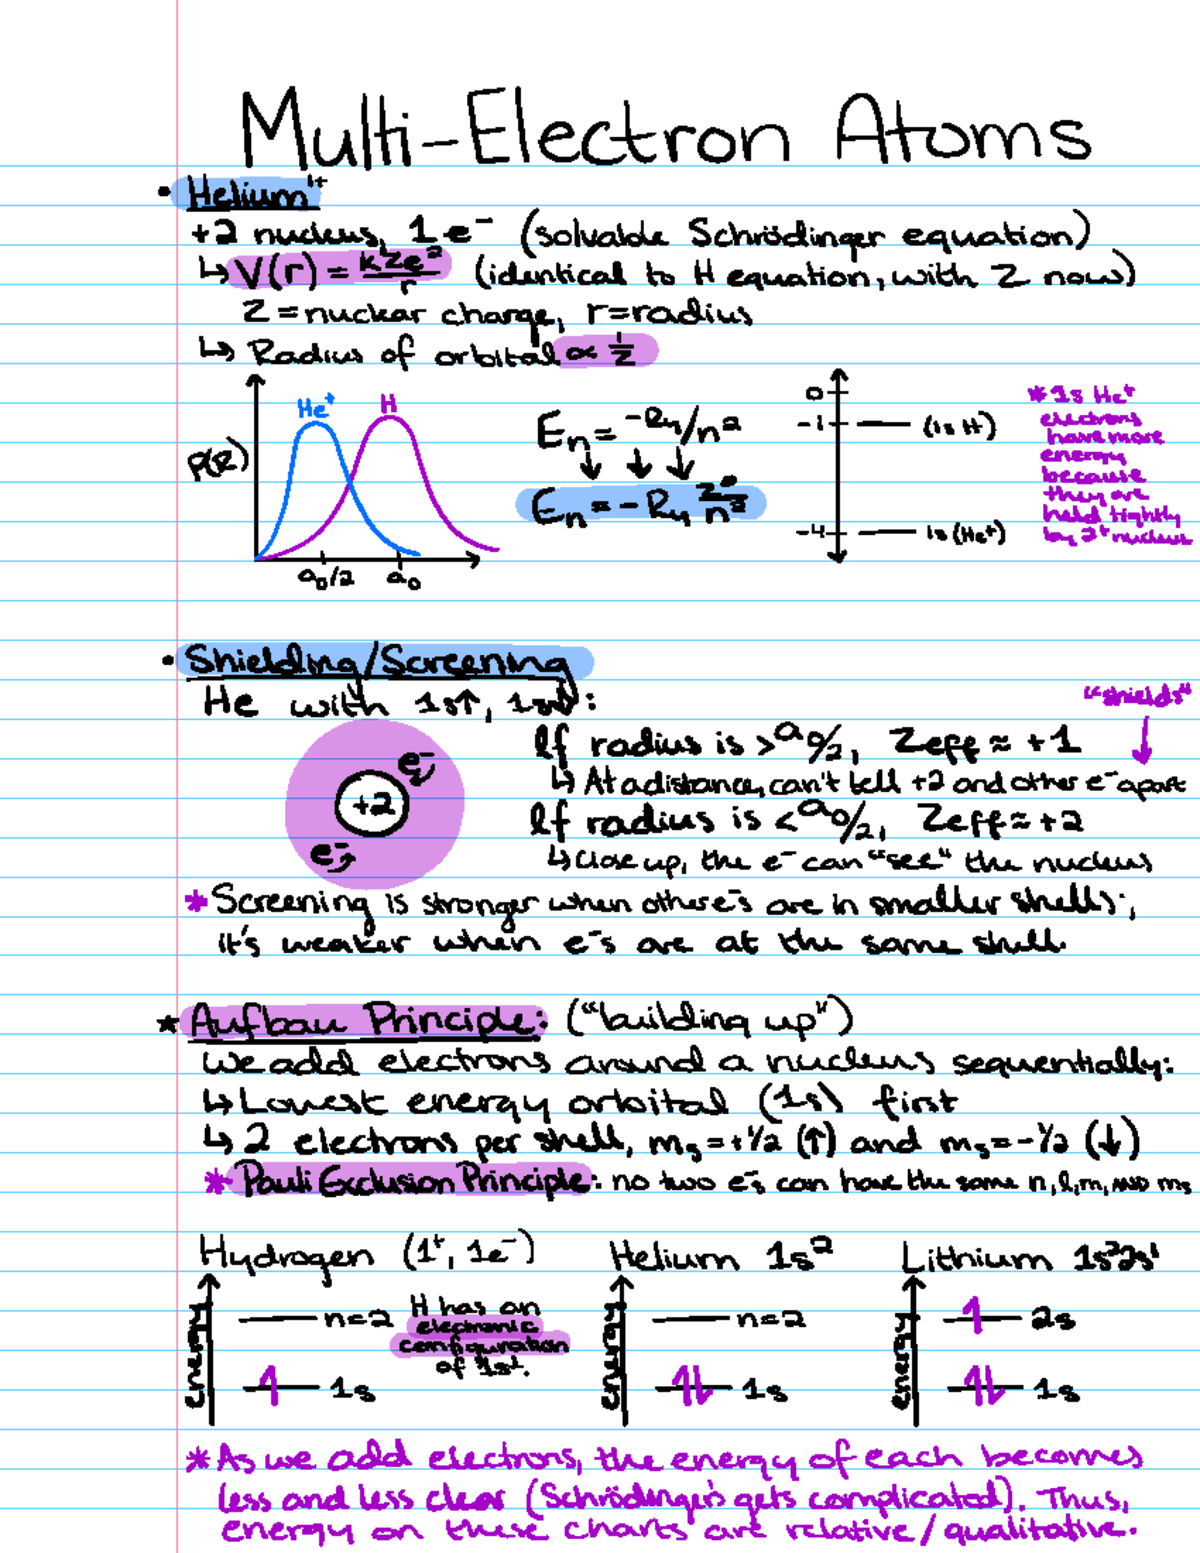 Multi-Electron Atoms
• Helium¹⁺
+2 nucleus, 1 e⁻ (solvable Schrödinger equation)
↳ V(r) = kZe²/r (identical to H equation, with Z now)
Z = nuclear charge, r=radius
↳ Radius of orbital ∝ 1/Z
P(R)
He⁺
H
a₀/2
a₀
Eₙ = -Ry/n²
↓ ↓ ↓
Eₙ = -Ry Z²/n²
0
-1 (1s H)
-4 1s (He⁺)
*1s He⁺
electrons
have more
energy
because
they are
held tightly
by 2⁺ nucleus
• Shielding/Screening
He with 1s↑, 1s↓:
+2
e⁻
e⁻
"shields"
↓
If radius is >a₀/2, Zeff ≈ +1
↳ At a distance, can't tell +2 and other e⁻ apart
If radius is <a₀/2, Zeff ≈ +2
↳ Close up, the e⁻ can "see" the nucleus
* Screening is stronger when other e⁻s are in smaller shells;
it's weaker when e⁻s are at the same shell.
★ Aufbau Principle: ("building up")
We add electrons around a nucleus sequentially:
↳ Lowest energy orbital (1s) first
↳ 2 electrons per shell, mₛ=+½ (↑) and mₛ=-½ (↓)
* Pauli Exclusion Principle: no two e⁻s can have the same n, l, m, AND mₛ
Hydrogen (1⁺, 1e⁻)
energy
n=2
1s
H has an
electronic
configuration
of 1s¹.
Helium 1s²
energy
n=2
1s
Lithium 1s²2s¹
energy
2s
1s
* As we add electrons, the energy of each becomes
less and less clear (Schrödinger's gets complicated). Thus,
energy on these charts are relative/qualitative.